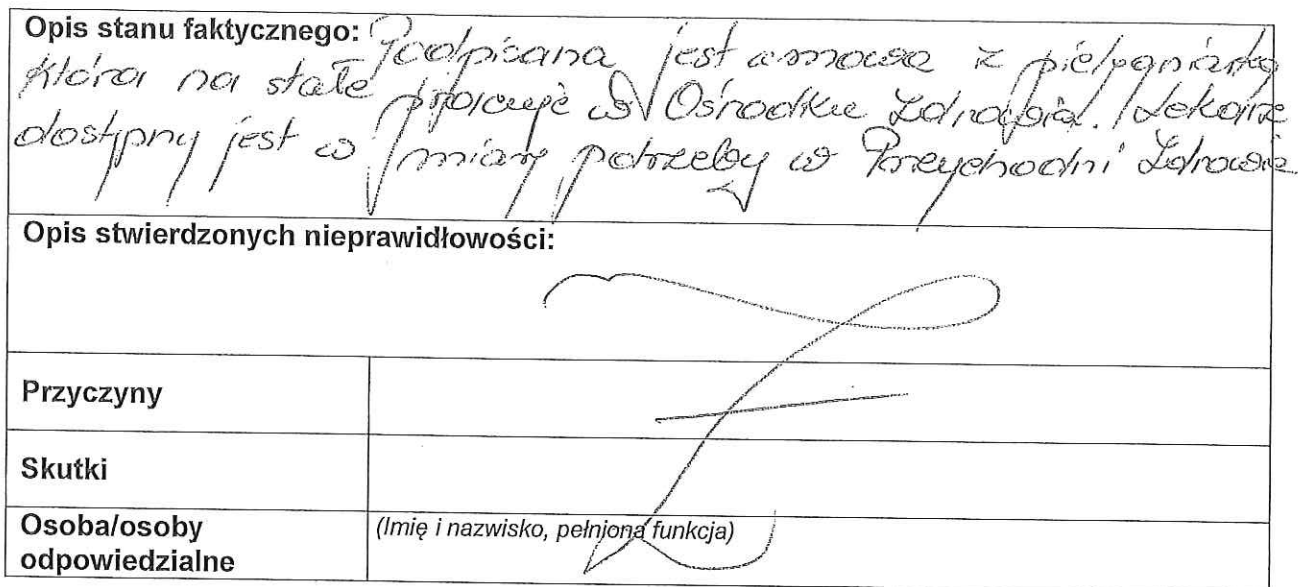 Opis stanu faktycznego: Podpisana jest umowa z pielęgniarką
która na stałe pracuje w Ośrodku Zdrowia. Lekarz
dostępny jest w miarę potrzeby w Przychodni Zdrowia
Opis stwierdzonych nieprawidłowości:
Przyczyny
Skutki
Osoba/osoby
odpowiedzialne
(Imię i nazwisko, pełniona funkcja)